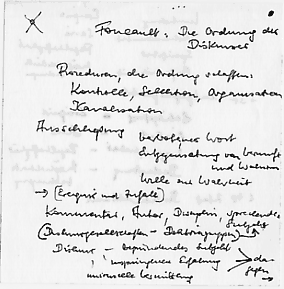 Foucault: Die Ordnung des
Diskurses
Prozeduren, die Ordnung schaffen:
Kontrolle, Selektion, Organisation
Kanalisation
Ausschließung verbotenes Wort
Entgegensetzung von Vernunft
und Wahnsinn
Wille zur Wahrheit
→ (Ereignis und Zufall)
Kommentar, Autor, Disziplin, sprechendes
Subjekt
(Diskursgesellschaften – Doktringruppen)
Diskurs – begründendes Subjekt
ursprüngliche Erfahrung
universelle Vermittlung
da-
gegen
→